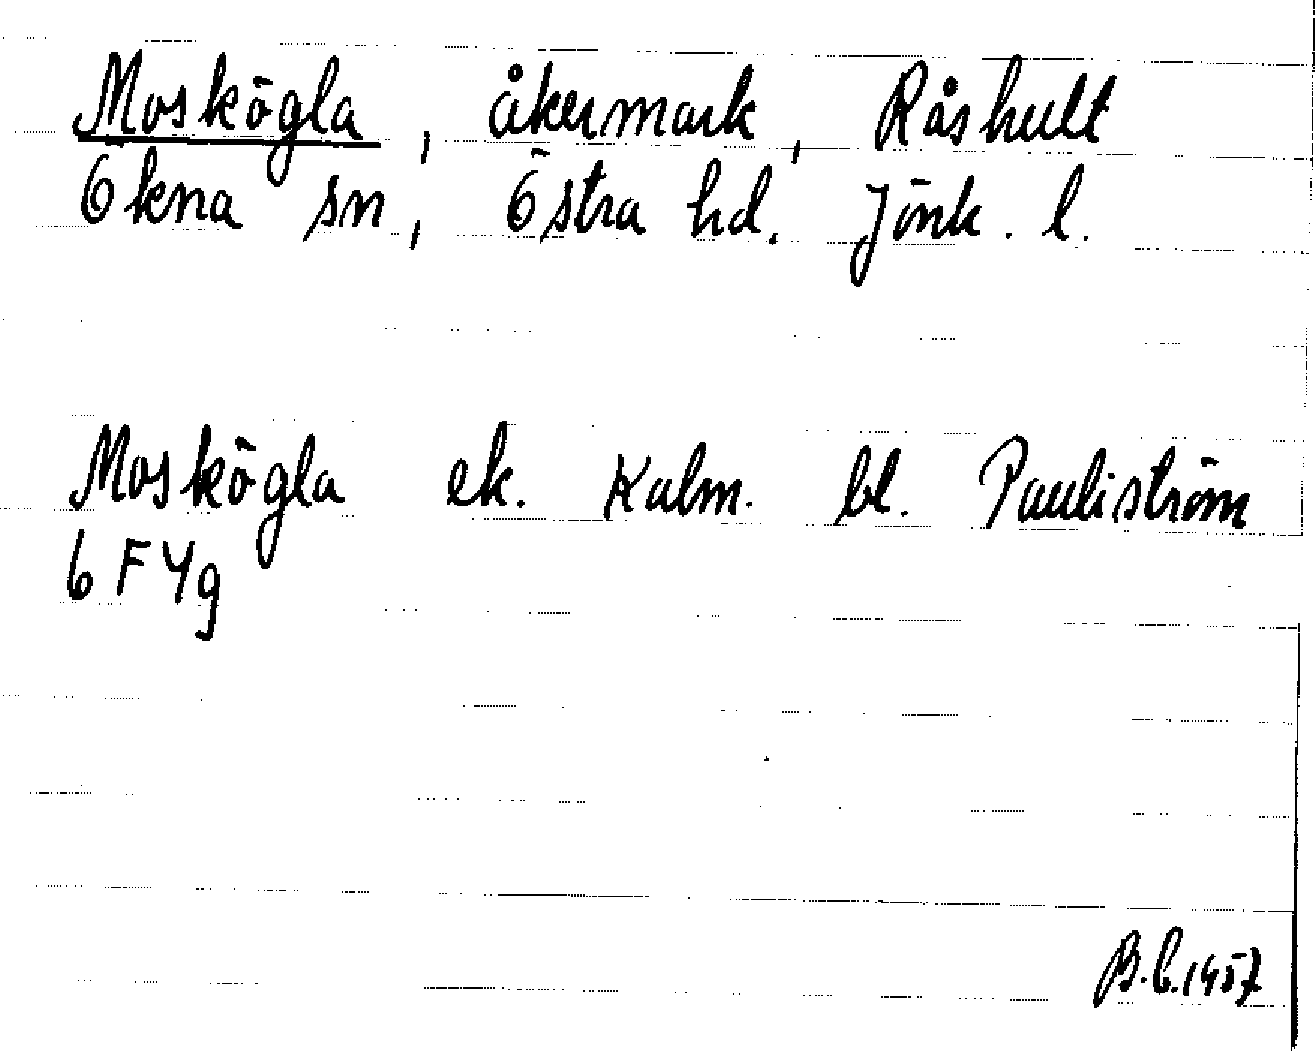 Moskögla, åkermark, Råshult
Ökna sn, Östra hd. Jönk. l.
Moskögla ek. Kalm. bl. Pauliström
6 F 4g
B.L. 1957